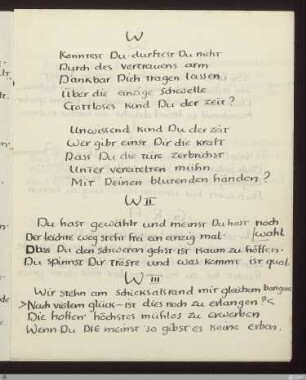 W
Konntest Du durftest Du nicht
Durch des vertrauens arm
Dankbar Dich tragen lassen
Über die einzige schwelle
Gottloses Kind Du der zeit?
Unwissend Kind Du der zeit
Wer gibt einst Dir die kraft
Dass Du die türe zerbrichst
Unter vereitelten mühn
Mit Deinen blutenden händen?
W II
Du hast gewählt und meinst Du hast noch
Der leichte weg steht frei ein anzig mal /wahl
Dass Du den schweren gehst ist kaum zu hoffen.
Du spinnst Dir tröste und was kommt ist qual.
W III
Wir stehn am schicksalsrand mit gleichem bangen
>Nach vielem glück – ist dies noch zu erlangen?<
Die hoffen höchstes mühlos zu erwerben
Wenn Du DIE meinst so gibst es keine erben.